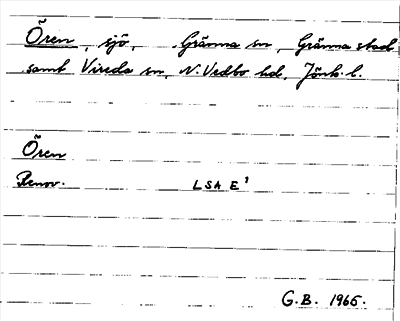 Ören, sjö, Gränna sn, Gränna stad
samt Vireda sn, N. Vedbo hd, Jönk. l.
Ören
Renov. LSA E¹
G.B. 1965.